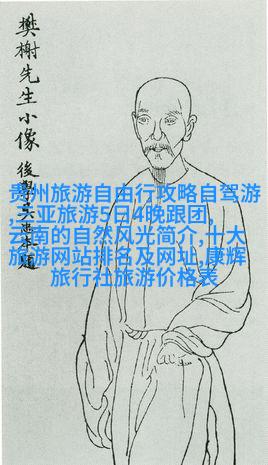 樊榭先生小像
後學
贵州旅游自由行攻略自驾游
,三亚旅游5日4晚跟团,
云南的自然风光简介,十大
旅游网站排名及网址,康辉
旅行社旅游价格表